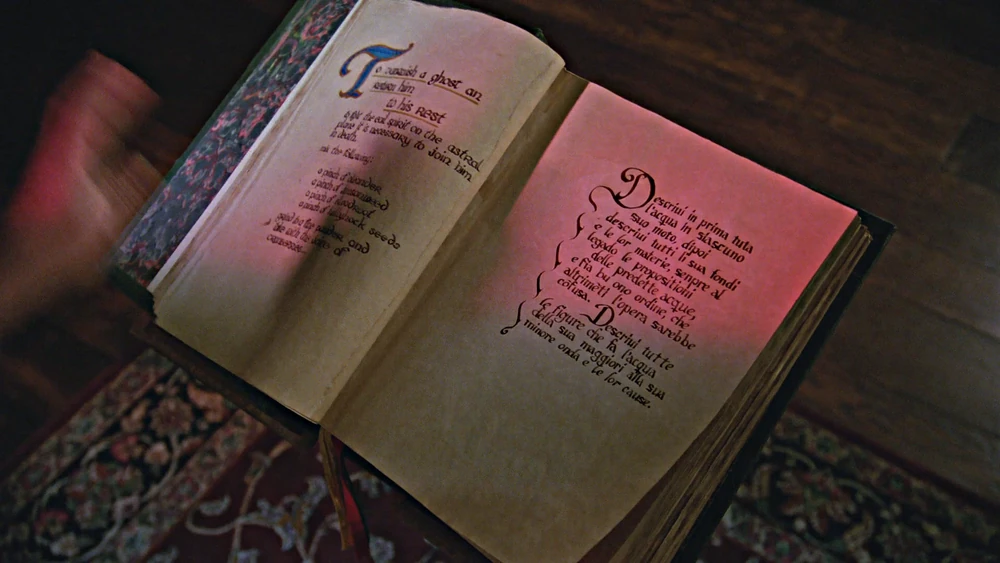 To vanquish a ghost an
return him
to his Rest
to fight the evil spirit on the astral
plane it is necessary to join him
in death.
mix the following:
a pinch of
a pinch of
a pinch of
a pinch of hemlock seeds
and
of
Descriui in prima tuta
l'acqua in ciascuno
suo moto, dipoi
descriui tutti li sua fondi
e le lor materie, senpre al
legado le propositioui
delle predette acque,
e fia bu ono ordine, che
altrimēti l'opera sarebbe
cōfusa. Descriui tutte
le figure che fa l'acqua
della sua maggiori alla sua
minore onda e le lor cause.